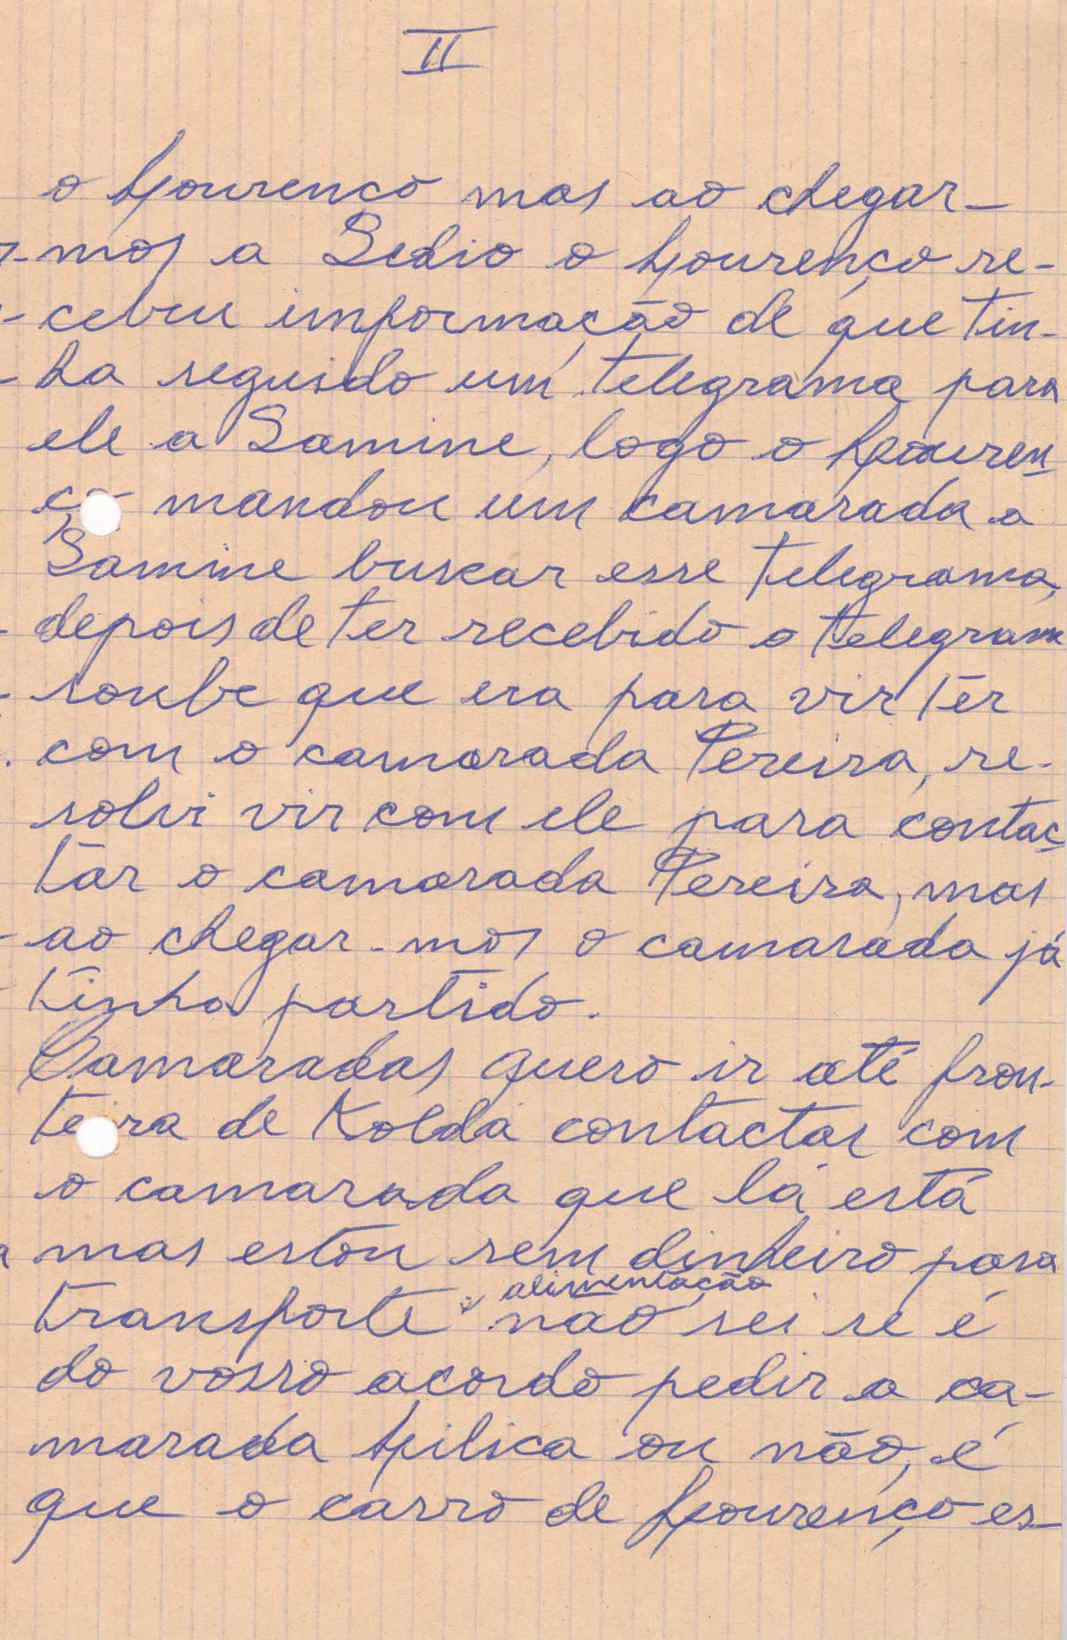 II
o Lourenco mas ao chegar-
-mos a Sedio o Lourenço re-
-cebeu informação de que tin-
-ha seguido um telegrama para
ele a Samine, logo o Louren
ço mandou um camarada a
Samine buscar esse telegrama,
depois de ter recebido o telegrama
soube que era para vir ter
com o camarada Pereira, re-
solvi vir com ele para contac
tar o camarada Pereira, mas
ao chegar-mos o camarada já
tinha partido.
Camaradas quero ir até fron-
teira de Kolda contactar com
o camarada que lá está
mas estou sem dinheiro para
alimentação
transporte não sei se é
do vosso acordo pedir a ca-
marada Lilica ou não, é
que o carro de Lourenço es-